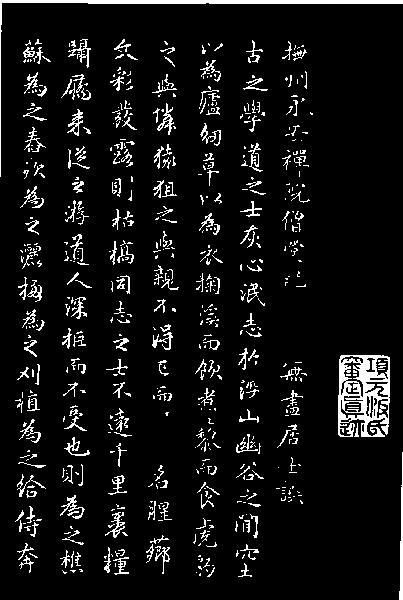 撫州永安禪院僧堂記 無盡居士譔
古之學道之士灰心泯志於深山幽谷之間穴土
以為廬紉草以為衣掬溪而飲煮藜而食虎豹
之與隣猿狙之與親不得已而 名腥薌
文彩發露則枯槁同志之士不遠千里裹糧
躡屩来從之游道人深拒而不受也則為之樵
蘇為之舂炊為之灑掃為之刈植為之給侍奔
項元汴氏
審定真迹